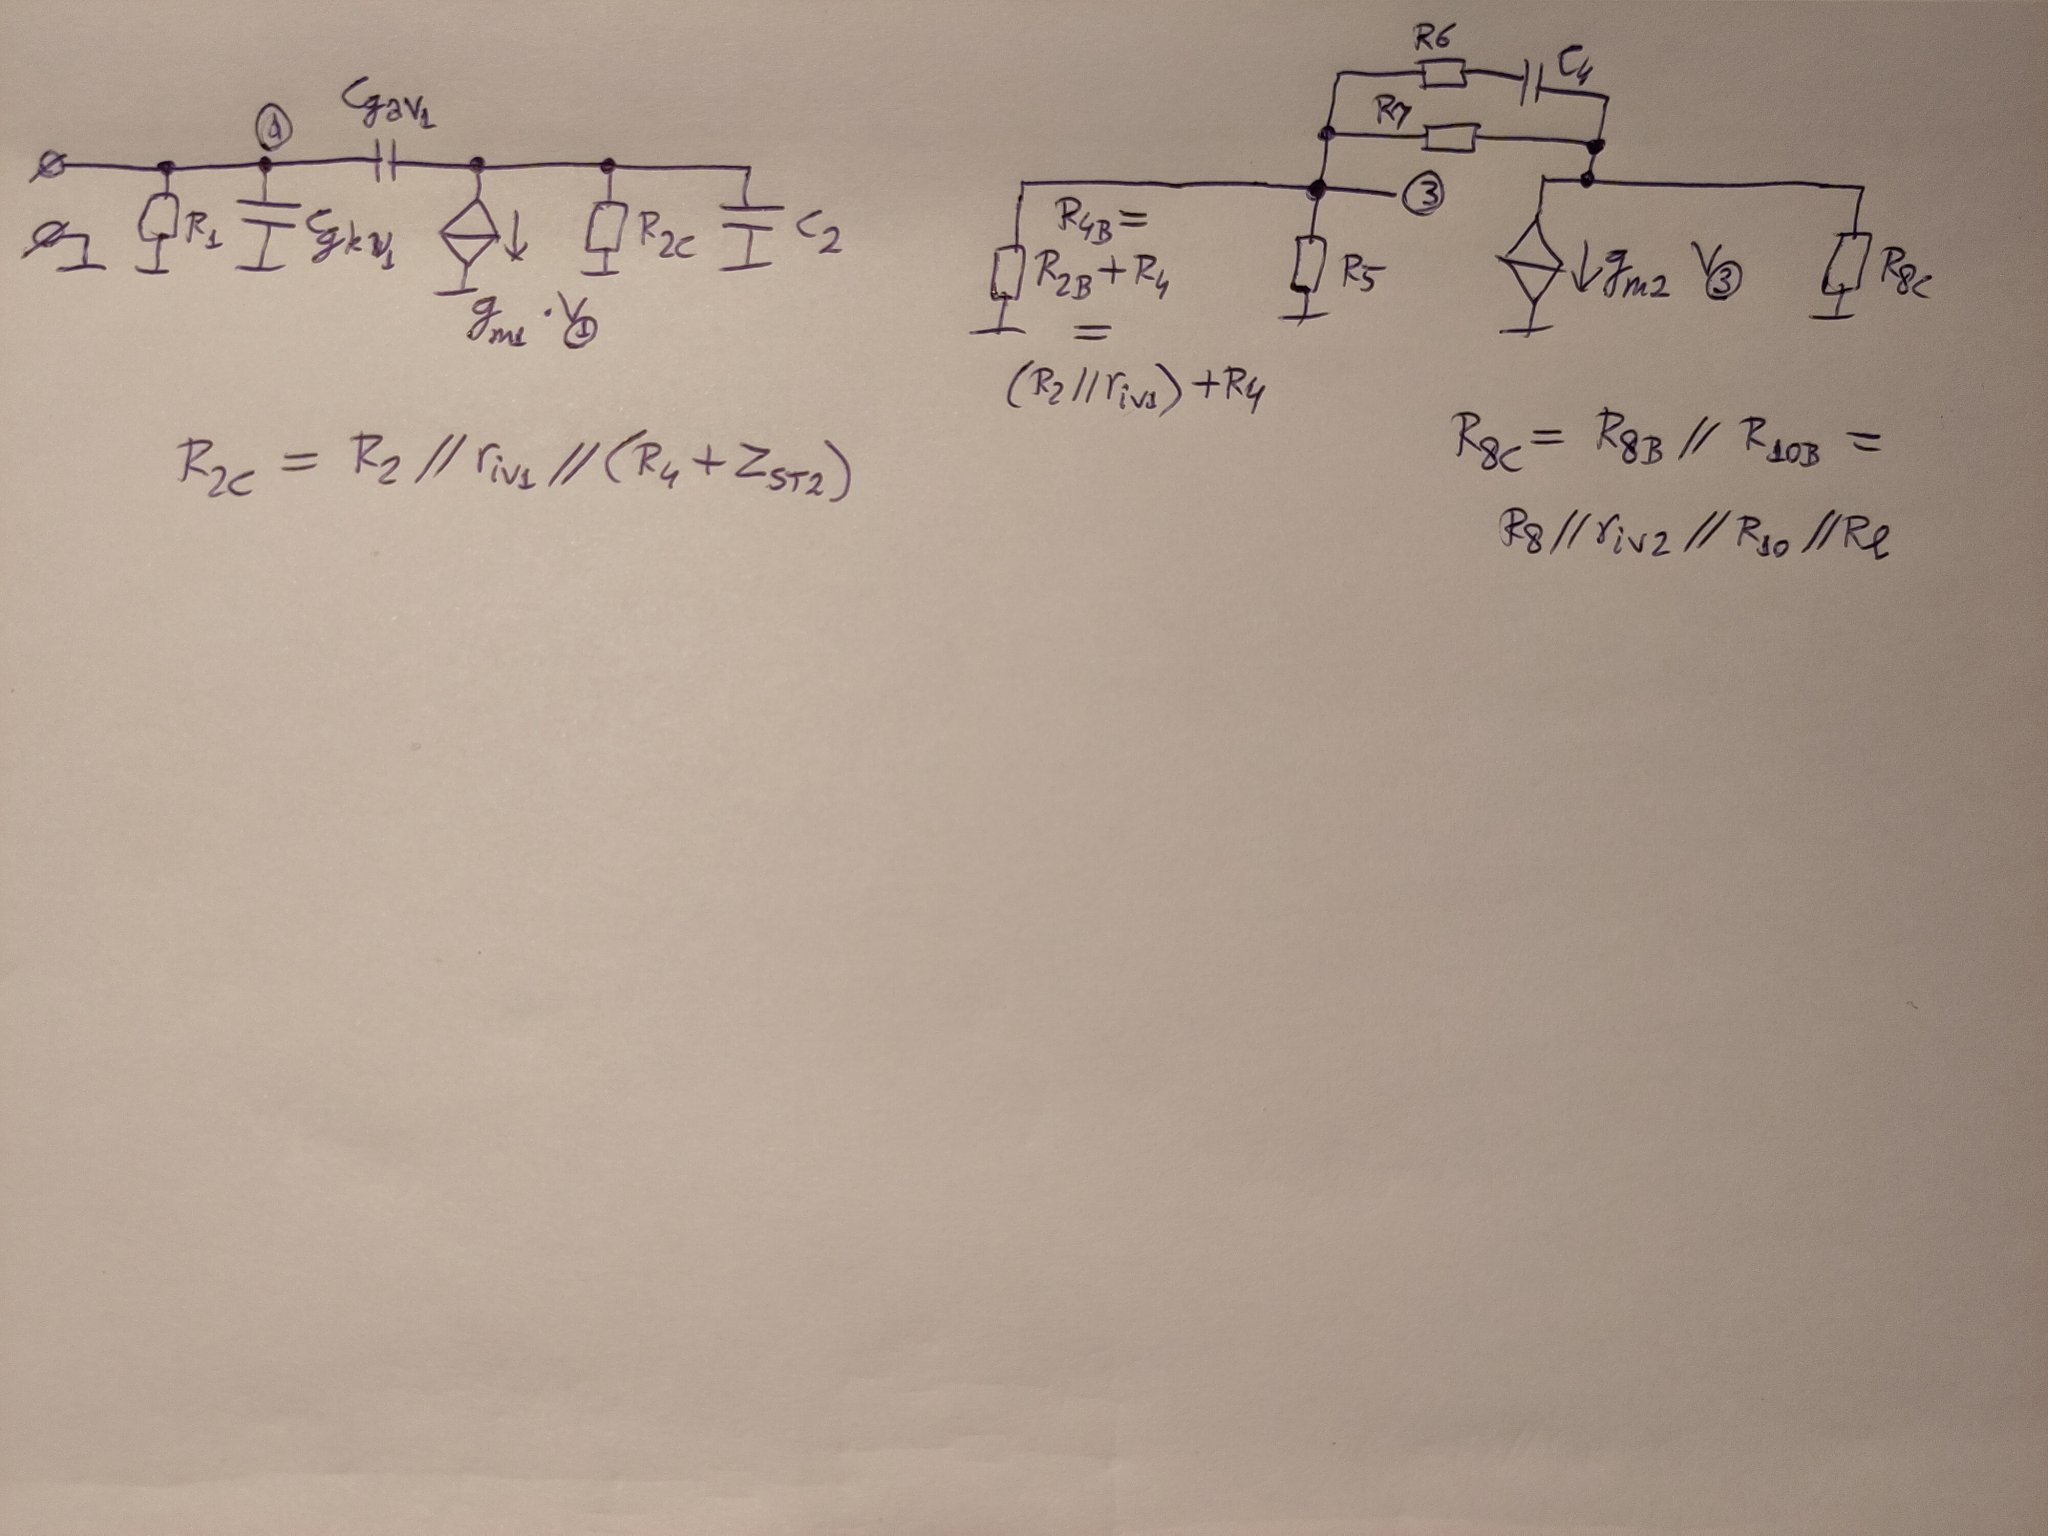 ① Cgav₁
R₁ Cgkv₁ R₂c C₂
gm₁ · V①
R₂c = R₂ // riv₁ // (R₄ + ZST2)
R6 C₄
R7
③
R₄B =
R₂B + R₄ R5 gm2 V③ R8c
=
(R₂ // riv₁) + R₄
R8c = R8B // R10B =
R8 // riv2 // R10 // Rℓ